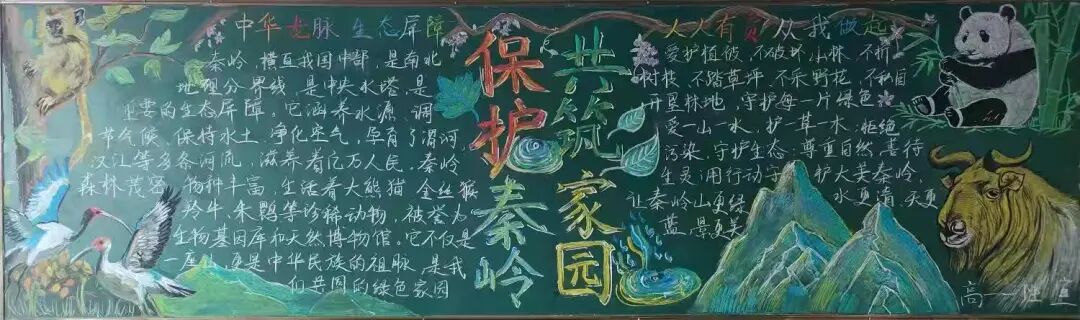 中华龙脉 生态屏障
秦岭,横亘我国中部,是南北
地理分界线,是中央水塔,是
重要的生态屏障。它涵养水源、调
节气候、保持水土、净化空气,孕育了渭河、
汉江等多条河流,滋养着亿万人民。秦岭
森林茂密,物种丰富,生活着大熊猫、金丝猴、
羚牛、朱鹮等珍稀动物,被誉为
生物基因库和天然博物馆。它不仅是
一座山,更是中华民族的祖脉,是我
们共同的绿色家园
保护秦岭
共筑家园
人人有责 从我做起
爱护植被,不破坏山林,不折
树枝,不踏草坪,不采野花,不私自
开垦林地,守护每一片绿色
爱一山一水,护一草一木,拒绝
污染,守护生态;尊重自然,善待
生灵;用行动守护大美秦岭,
让秦岭山更绿 水更清,天更
蓝,景更美
高一